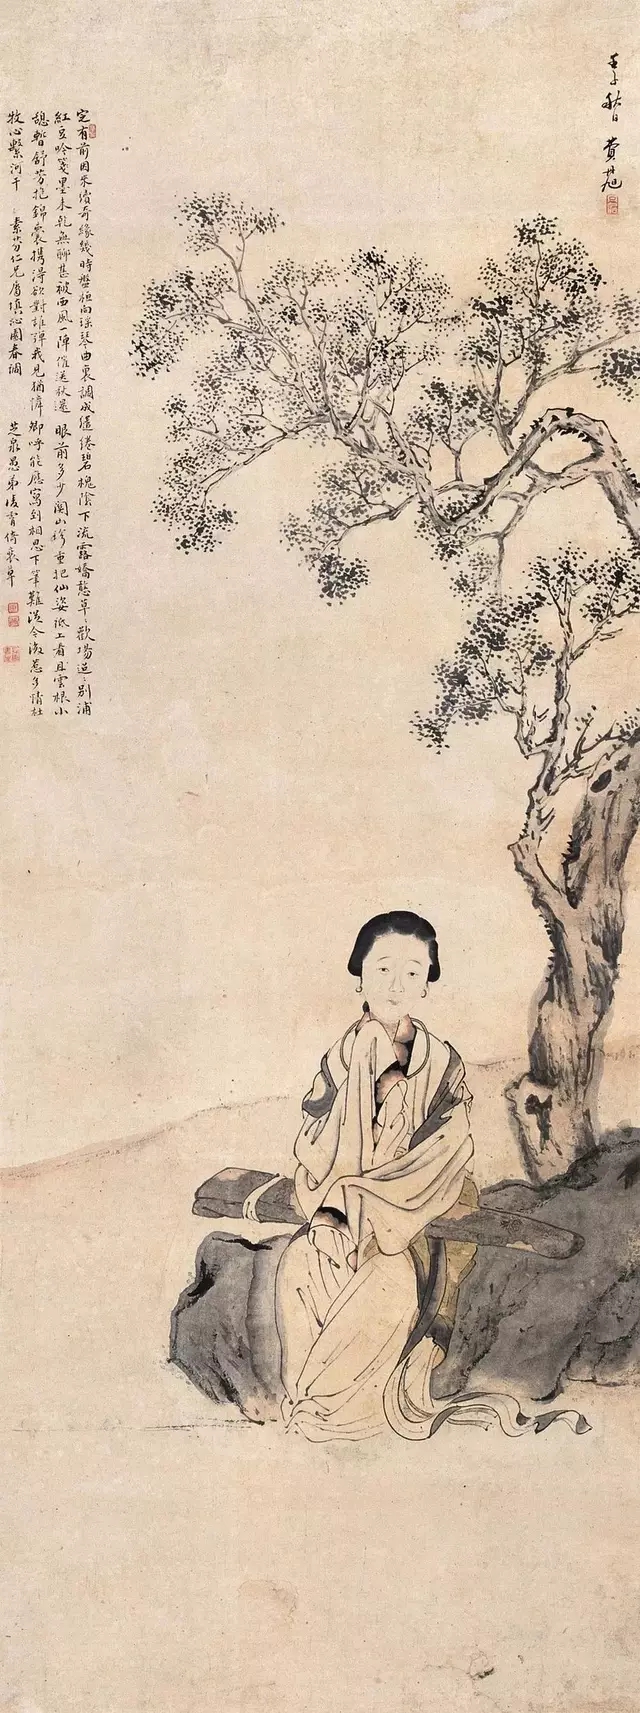 壬子秋日 費
定有前因未償奇緣幾時盤桓向瑤琴曲裏調成繾綣碧槐陰下流露嬌憨草草歡場迢迢別浦
紅豆吟箋墨未乾無聊甚被西風一陣催送秋還 眼前多少關山珍重把仙姿紙上看且雲根小
憩暫舒芳抱錦囊攜得欲對誰彈我見猶憐卿呼能應寫到相思下筆難從今後惹多情杜
牧心繫河干 素芬仁兄屬填沁園春調 芝泉愚弟凌霄倚裝草